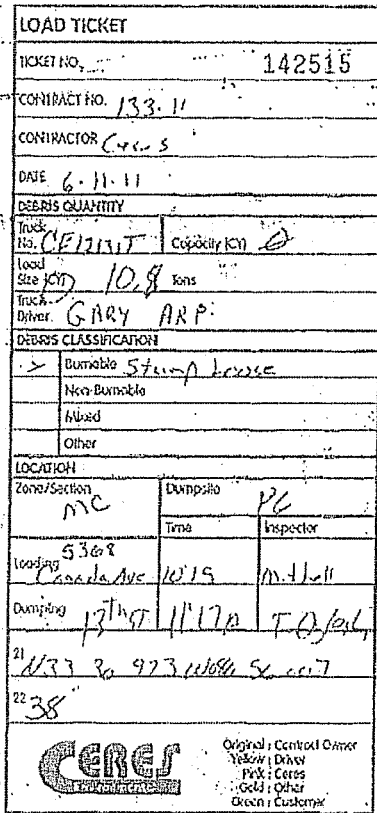 LOAD TICKET
TICKET NO. 142515
CONTRACT NO. 133-11
CONTRACTOR Ceres
DATE 6-11-11
DEBRIS QUANTITY
Truck No. Capacity (CY)
Load Size (CY) 10.8 Tons
Truck Driver: GARY ARP
DEBRIS CLASSIFICATION
Burnable Stump
Non-Burnable
Mixed
Other
LOCATION
Zone/Section MC Dumpsite
Time Inspector
Loading 5368 Canada Ave 10:15
Dumping 13th 11:17
21 N33
22 38"
CERES
Environmental
Original : Contract Owner
Yellow : Driver
Pink : Ceres
Gold : Other
Green : Customer